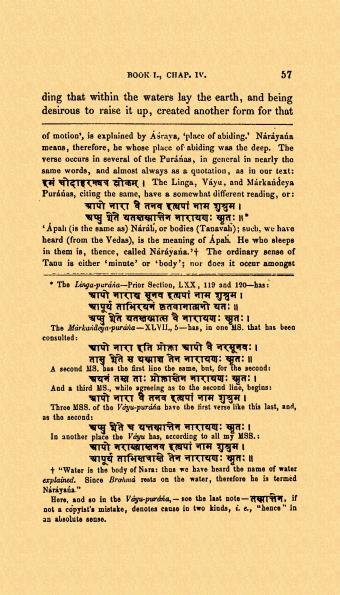 BOOK I., CHAP. IV. 57
ding that within the waters lay the earth, and being
desirous to raise it up, created another form for that
of motion', is explained by Áśraya, 'place of abiding.' Náráyańa
means, therefore, he whose place of abiding was the deep. The
verse occurs in several of the Puráńas, in general in nearly the
same words, and almost always as a quotation, as in our text:
इमं चोदाहरन्त्यत्र श्लोकम् । The Linga, Váyu, and Márkańdeya
Puráńas, citing the same, have a somewhat different reading, or:
आपो नारा वै तनव इत्यपां नाम शुश्रुम ।
अप्सु शेते यतस्तस्मात्तेन नारायणः स्मृतः ॥*
'Ápah (is the same as) Náráh, or bodies (Tanavah); such, we have
heard (from the Vedas), is the meaning of Ápah. He who sleeps
in them is, thence, called Náráyańa.'† The ordinary sense of
Tanu is either 'minute' or 'body'; nor does it occur amongst
* The Linga-puráńa—Prior Section, LXX, 119 and 120—has:
आपो नाराश्च सूनव इत्यपां नाम शुश्रुम ।
आपूर्य ताभिरयनं कृतवानात्मनो यतः ॥
अप्सु शेते यतस्तस्मात्ततो नारायणः स्मृतः ॥
The Márkańdeya-puráńa—XLVII., 5—has, in one MS. that has been
consulted:
आपो नारा इति प्रोक्ता आपो वै नरसूनवः ।
तासु शेते स यस्माच्च तेन नारायणः स्मृतः ॥
A second MS. has the first line the same, but, for the second:
अयनं तस्य ताः प्रोक्तास्तेन नारायणः स्मृतः ।
And a third MS., while agreeing as to the second line, begins:
आपो नारा वै तनव इत्यपां नाम शुश्रुम ।
Three MSS. of the Váyu-puráńa have the first verse like this last, and,
as the second:
अप्सु शेते च यत्तस्मात्तेन नारायणः स्मृतः ॥
In another place the Váyu has, according to all my MSS.:
आपो नाराख्यास्तनव इत्यपां नाम शुश्रुम ।
आपूर्य ताभिस्तत्रास्ते तेन नारायणः स्मृतः ॥
† "Water is the body of Nara: thus we have heard the name of water
explained. Since Brahmá rests on the water, therefore he is termed
Náráyańa."
Here, and so in the Váyu-puráńa,—see the last note—तस्मात्तेन, if
not a copyist's mistake, denotes cause in two kinds, i. e., "hence" in
an absolute sense.